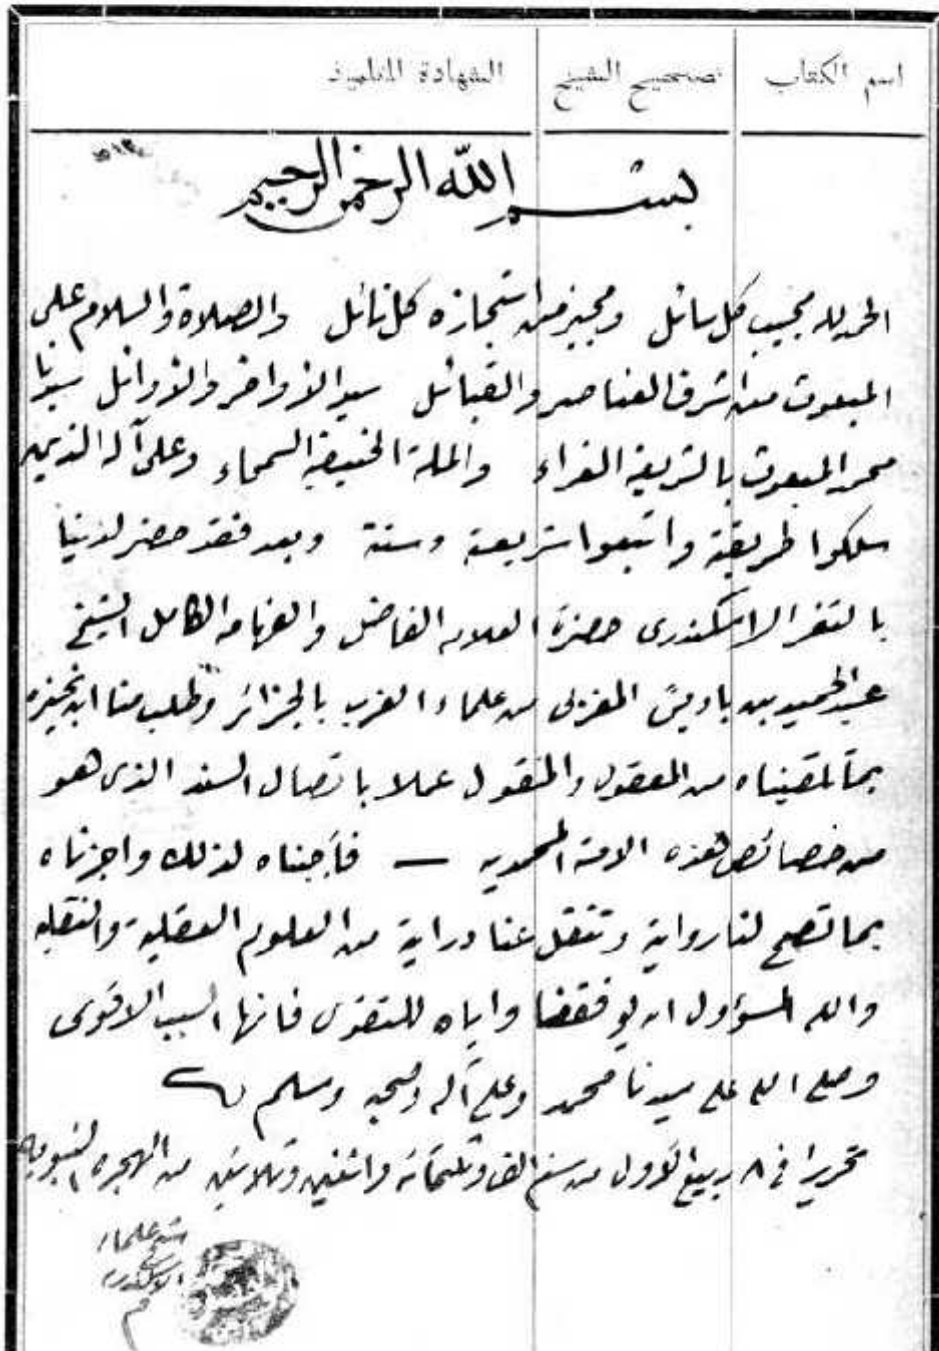 اسم الكتاب تصحيح الشيخ الشهادة للتلميذ
بسم الله الرحمن الرحيم
الحمد لله مجيب كل سائل ومجيز من استجازه كل نائل والصلاة والسلام على
المبعوث من اشرف العناصر والقبائل سيد الأواخر والأوائل سيدنا
محمد المبعوث بالشريعة الغراء والملة الحنيفية السمحاء وعلى آله الذين
سلكوا طريقته واتبعوا شريعته وسنته وبعد فقد حضر لدينا
بالثغر الاسكندرى حضرة العلامه الفاضل والفهامه الكامل الشيخ
عبد الحميد بن باديس المغربى من علماء الغرب بالجزائر وطلب منا ان نجيزه
بما تلقيناه من المعقول والمنقول عملا باتصال السند الذى هو
من خصائص هذه الامة المحمديه — فأجبناه لذلك واجزناه
بما تصح لنا رواية وتنقل عنا دراية من العلوم العقلية والنقليه
والله المسؤول ان يوفقنا واياه للتقوى فانها السبب الاقوى
وصلى الله على سيدنا محمد وعلى آله وصحبه وسلم
تحريرا فى ٨ ربيع الأول من سنة الف وثلثمائة واثنين وثلاثين من الهجرة النبويه
علماء